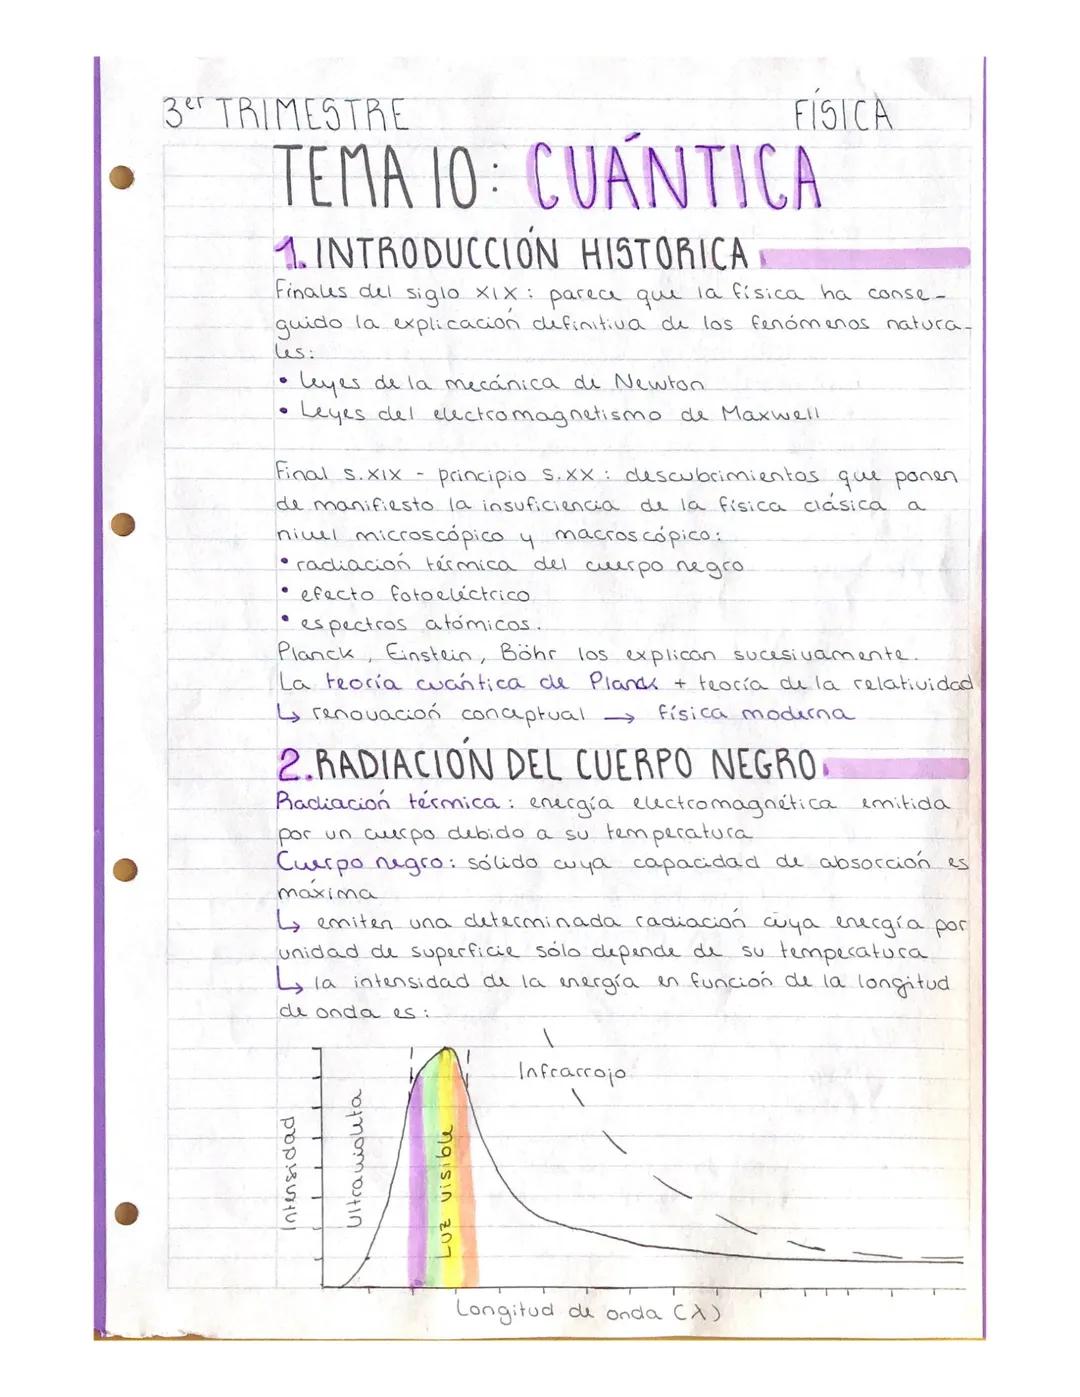 3er TRIMESTRE
FÍSICA
TEMA 10: CUÁNTICA
1. INTRODUCCIÓN HISTORICA
Finales del siglo XIX: parece que la física ha conse-
guido la explicación definitiva de los fenómenos natura-
les:
• leyes de la mecánica de Newton
• Leyes del electromagnetismo de Maxwell
Final S.XIX - principio S.XX: descubrimientos que ponen
de manifiesto la insuficiencia de la física clásica a
nivel microscópico y macroscópico:
• radiación térmica del cuerpo negro
• efecto fotoeléctrico
• espectros atómicos.
Planck, Einstein, Böhr los explican sucesivamente.
La teoría cuántica de Planck + teoría de la relatividad
↳ renovación conceptual → física moderna
2. RADIACIÓN DEL CUERPO NEGRO
Radiación térmica: energía electromagnética emitida
por un cuerpo debido a su temperatura
Cuerpo negro: sólido cuya capacidad de absorción es
máxima
↳ emiten una determinada radiación cuya energía por
unidad de superficie sólo depende de su temperatura
↳ la intensidad de la energía en función de la longitud
de onda es:
Intensidad
Ultravioleta
Luz visible
Infrarrojo
Longitud de onda (λ)